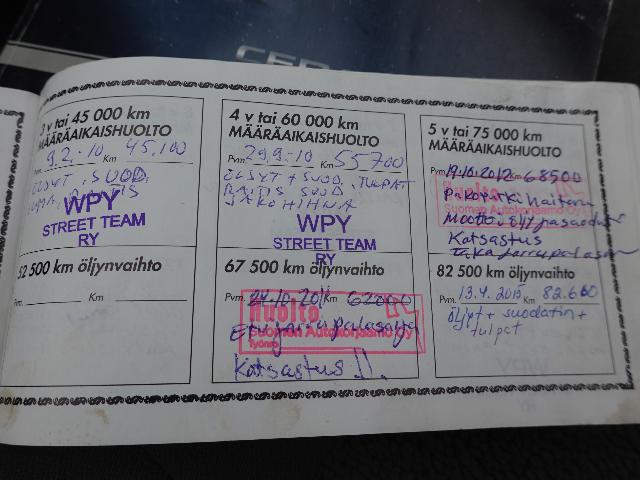 3 v tai 45 000 km
MÄÄRÄAIKAISHUOLTO
Pvm. 9.2.-10 Km 45.100
ÖLJYT, SUOD,
WPY
STREET TEAM
RY
52 500 km öljynvaihto
Pvm. Km
4 v tai 60 000 km
MÄÄRÄAIKAISHUOLTO
Pvm. 29.9.-10 Km 55700
ÖLJYT + SUOD, TULPAT
RAITIS SUOD
JAKOHIHNA
WPY
STREET TEAM
RY
67 500 km öljynvaihto
Pvm. 24.10.2011 Km 62000
Huolto
Etujarrupalasarja
Suomen Autokorjaamo Oy
Työnro
Katsastus !!
5 v tai 75 000 km
MÄÄRÄAIKAISHUOLTO
Pvm. 19.10.2012 Km 68500
Huolto
Pakoputki haitari
Suomen Autokorjaamo Oy
Moottoriöljy ja suodatus
Katsastus
takajarrupalasarja
82 500 km öljynvaihto
Pvm. 13.4.2015 Km 82.600
Öljyt + suodatin +
tulpat